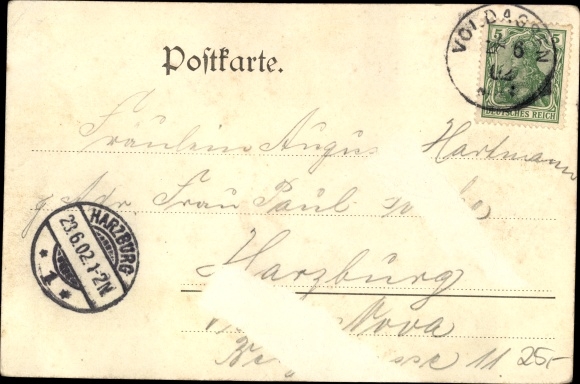 Postkarte.
VOLDAGSEN
6
02
5 5
DEUTSCHES REICH
Fräulein Augus Hartmann
Adr. Frau Paul
HARZBURG
23.6.02.1-2N
* 1 *
Harzburg
Nova
11 25,-